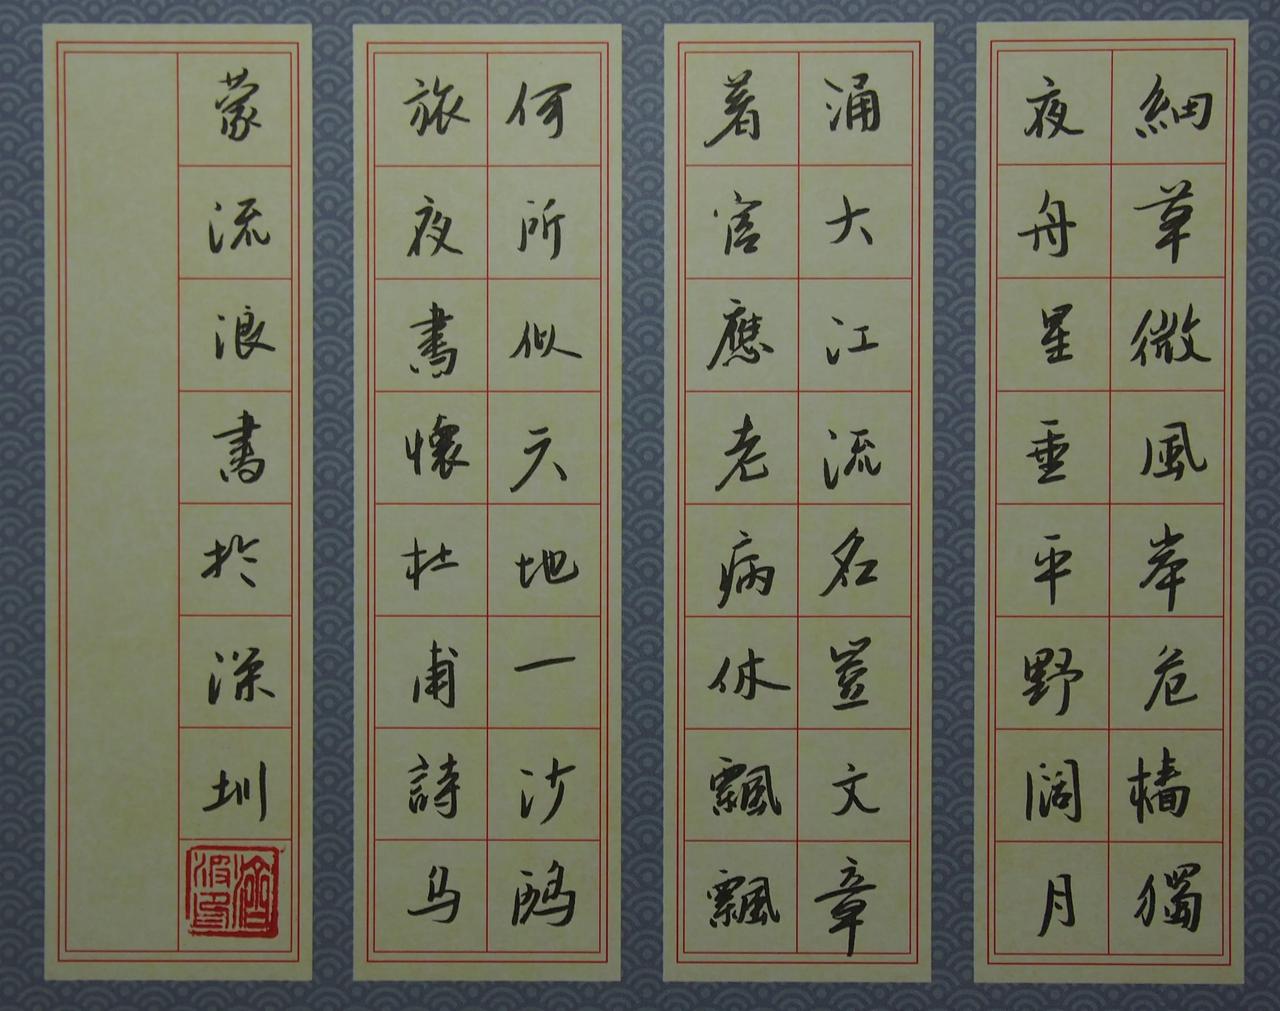 細草微風岸危檣獨
夜舟星垂平野闊月
涌大江流名豈文章
著官應老病休飄飄
何所似天地一沙鷗
旅夜書懷杜甫詩
流浪書於深圳